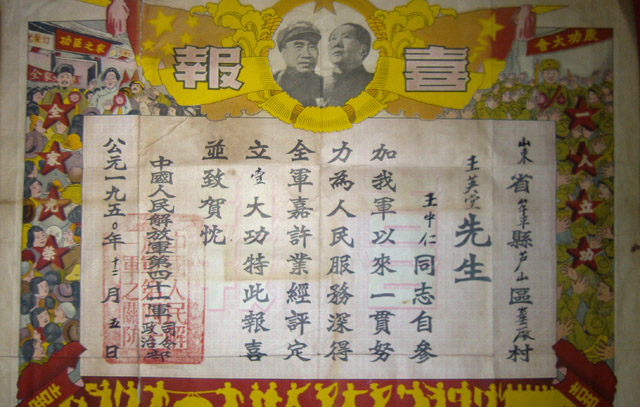 喜報
慶功大會
功臣之家
一人立功
全家光榮
山東省莘縣芦山區村
王英堂先生
王中仁同志自參
加我軍以來一貫努
力為人民服務深得
全軍嘉許業經評定
立壹大功特此報喜
並致賀忱
中國人民解放軍第四十一軍司令部政治部
公元一九五〇年十二月五日